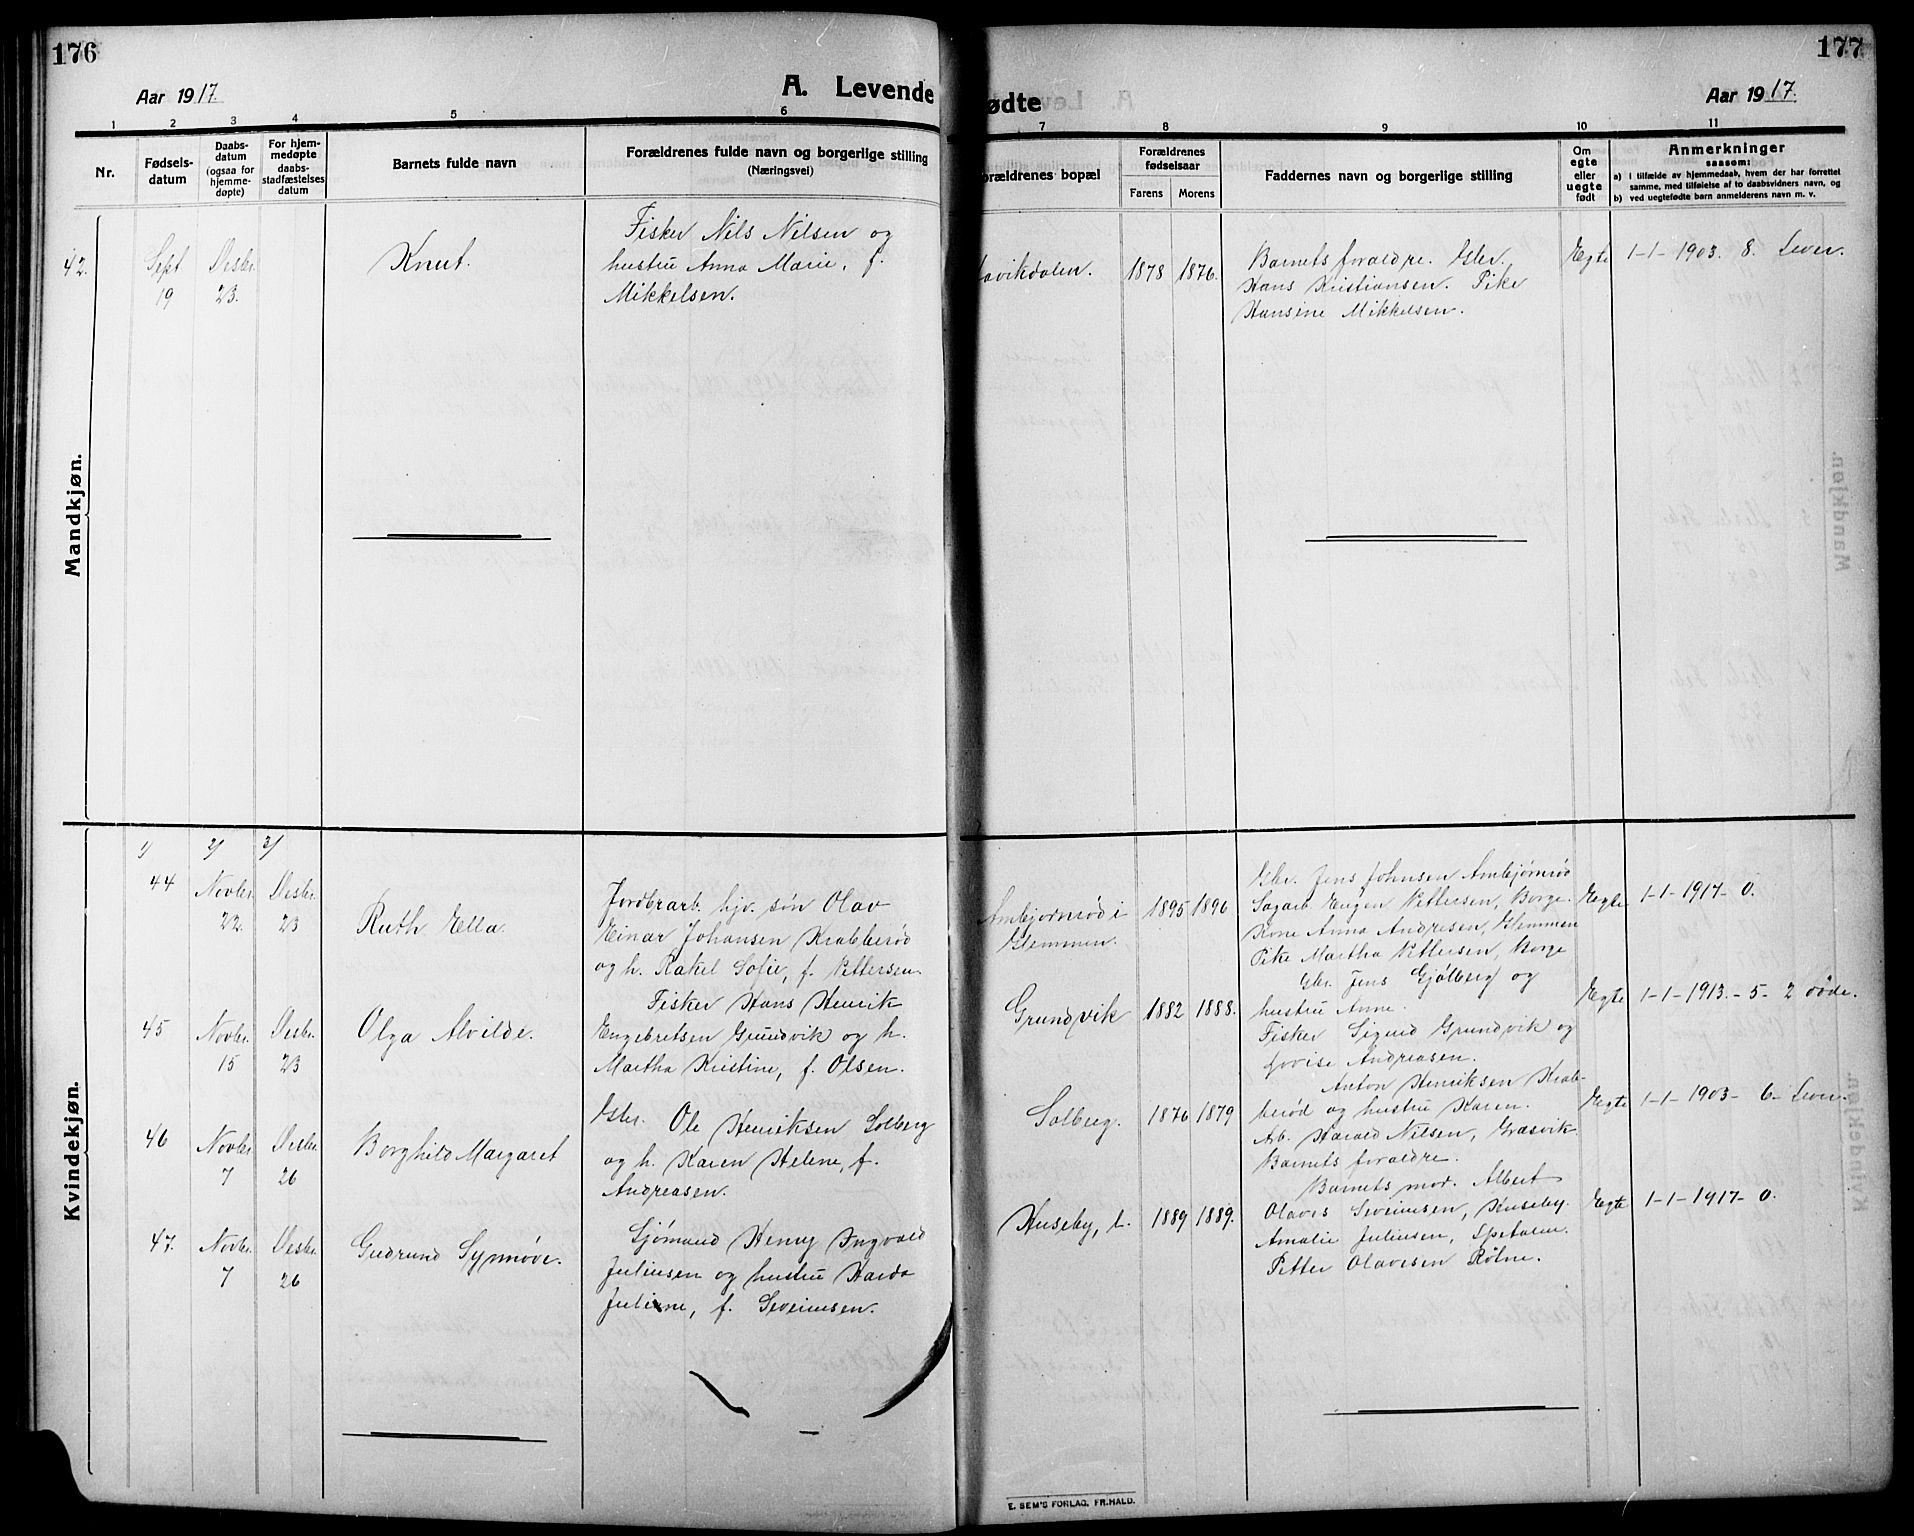 176
Aar 1917.
A. Levende
1 2 3 4 5 6
Nr.
Fødsels-
datum
Daabs-
datum
(ogsaa for
hjemme-
døpte)
For hjem-
medøpte
daabs-
stadfæstelses
datum
Barnets fulde navn
Forældrenes fulde navn og borgerlige stilling
(Næringsvei)
Mandkjøn.
42.
Sept
19
Desbr.
23.
Knut.
Fisker Nils Nilsen og
hustru Anna Marie, f.
Mikkelsen.
Kvindekjøn.
1/ 2/ 3/
44
Novbr.
22.
Desbr.
23
Ruth Ella.
Jordbrarb. hjv. søn Olav
Einar Johansen Krabberød
og h. Rakel Sofie, f. Pettersen.
45
Novbr.
15
Desbr.
23
Olga Alvilde.
Fisker Hans Henrik
Engebretsen Grundvik og h.
Martha Kristine, f. Olsen.
46
Novbr.
7
Desbr.
26
Borghild Margaret
Gbr. Ole Henriksen Solberg
og h. Karen Helene, f.
Andreasen.
47.
Novbr.
7
Desbr.
26
Gudrund Synnøve.
Sjømand Henry Ingvald
Juliusen og hustru Harda
Juliane, f. Severinsen.
177
ødte
Aar 1917.
7 8 9 10 11
orældrenes bopæl
Forældrenes
fødselsaar
Farens Morens
Faddernes navn og borgerlige stilling
Om
egte
eller
uegte
født
Anmerkninger
saasom:
a) i tilfælde av hjemmedaab, hvem der har forrettet
samme, med tilføielse af to daabsvidners navn, og
b) ved uegtefødte barn anmelderens navn m. v.
avikdalen.
1878 1876.
Barnets forældre. Gbr.
Hans Kristiansen. Pike
Hansine Mikkelsen.
Egte
1-1-1903. 8. Lever.
Ambjørnrød i
Glemmen.
1895 1896
Gbr. Jens Johnsen Ambjørnrød
Sagarb. Eugen Pettersen, Borge.
Kone Anna Andresen, Glemmen
Pike Martha Pettersen, Borge
Egte
1-1-1917-0.
Grundvik
1882 1888.
Gbr. Jens Gjølberg og
hustru Anne.
Fisker Sigurd Grundvik og
Lovise Andreasen.
Egte
1-1-1913.-5-2 døde.
Solberg.
1876 1879
Anton Henriksen Krab-
berød og hustru Karen.
Arb. Harald Nilsen, Græsvik.
Barnets forældre.
Egte
1-1-1903-6-Lever.
Huseby, l.
1889 1889.
Barnets mor. Albert
Olaves Severinsen, Huseby.
Amalie Juliusen, Spetalen.
Petter Olavesen Rølne.
Egte
1-1-1917-0.
E. SEM'S FORLAG, FR.HALD.